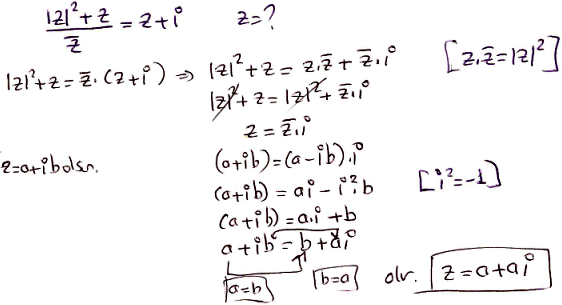 (|z|²+z)/z̅ = z+i    z=?
|z|²+z = z̅.(z+i) ⇒ |z|²+z = z.z̅ + z̅.i    [z.z̅=|z|²]
|z|²+z = |z|²+z̅.i
z = z̅.i
z=a+ib olsn.    (a+ib)=(a-ib).i
(a+ib) = ai - i².b    [i²=-1]
(a+ib)=a.i+b
a+ib=b+ai
a=b    b=a    olr.    z=a+ai